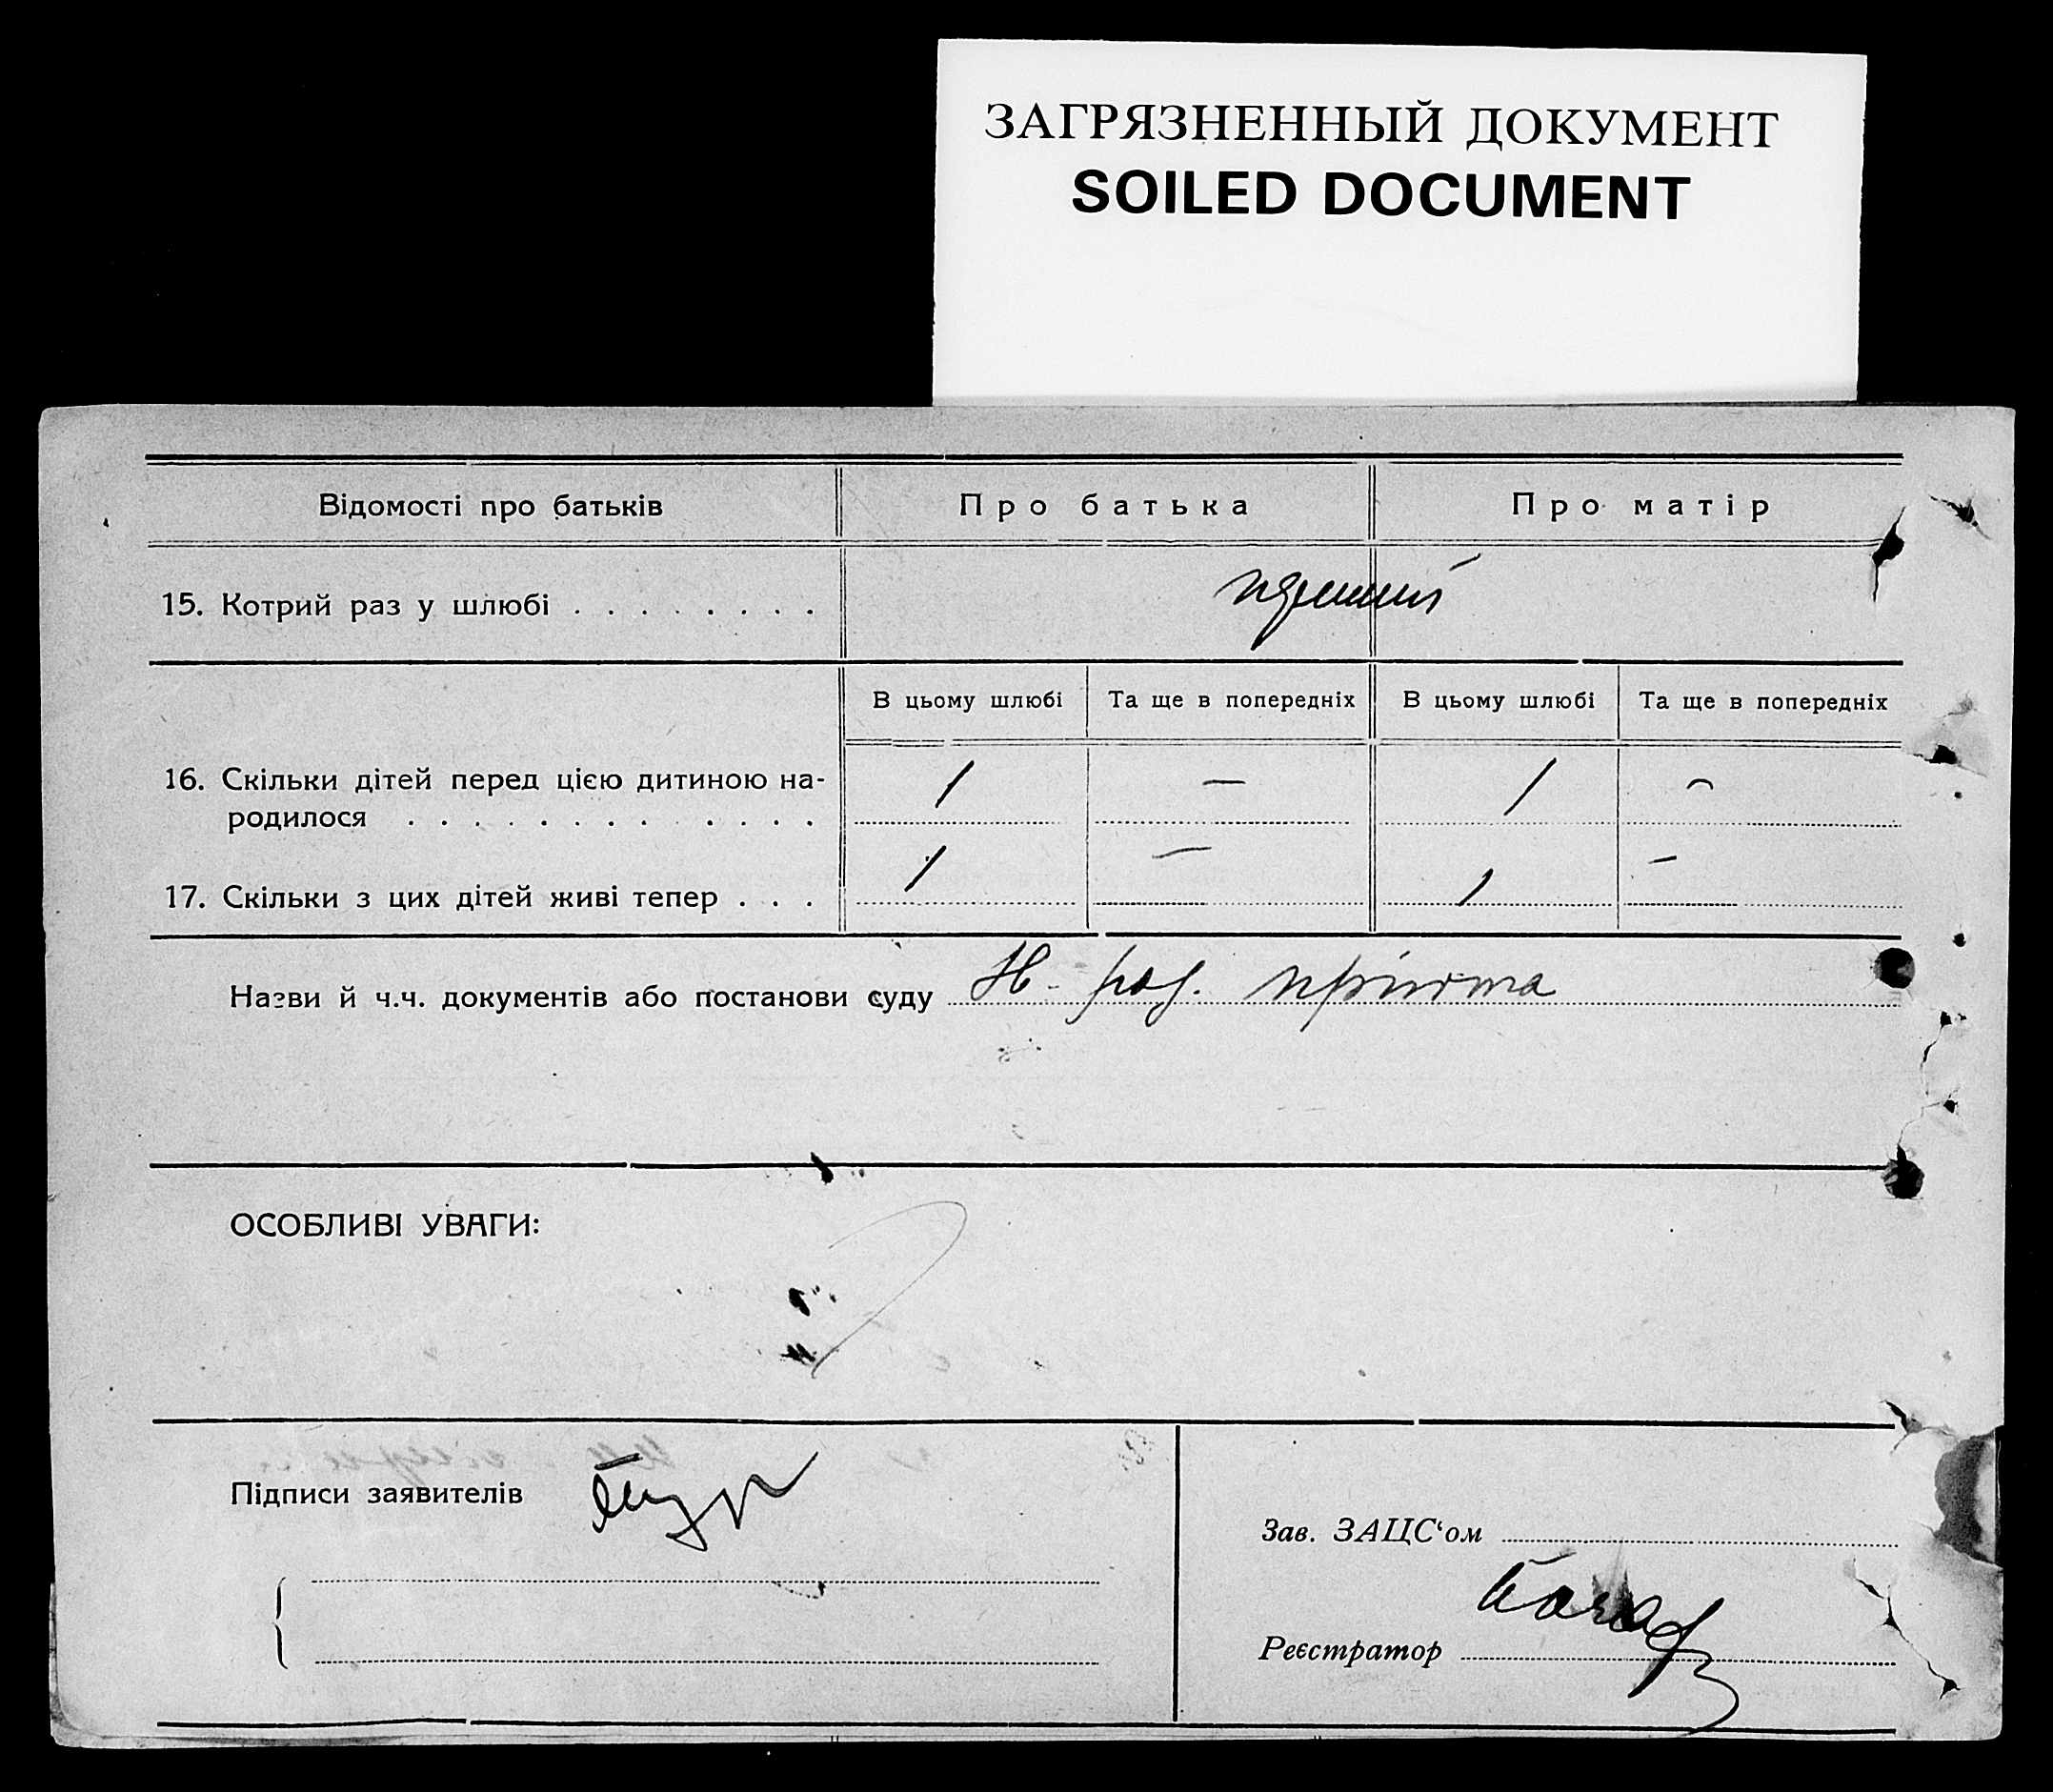 ЗАГРЯЗНЕННЫЙ ДОКУМЕНТ
SOILED DOCUMENT
Відомості про батьків
Про батька
Про матір
15. Котрий раз у шлюбі . . . . . . . .
В цьому шлюбі
Та ще в попередніх
В цьому шлюбі
Та ще в попередніх
16. Скільки дітей перед цією дитиною на-
родилося . . . . . . . . . . . . .
1 — 1 —
17. Скільки з цих дітей живі тепер . . .
1 — 1 —
Назви й ч.ч. документів або постанови суду
ОСОБЛИВІ УВАГИ:
Підписи заявителів
Зав. ЗАЦС‘ом
Реєстратор